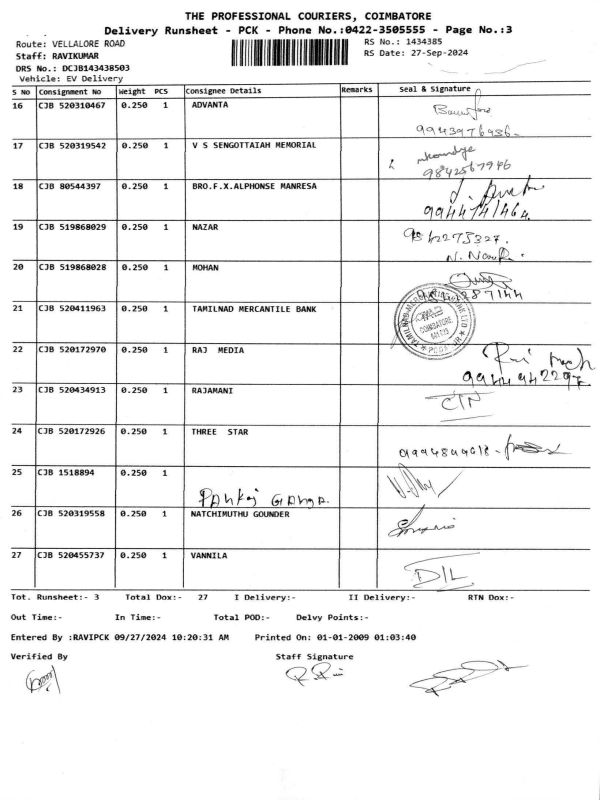 THE PROFESSIONAL COURIERS, COIMBATORE
Delivery Runsheet - PCK - Phone No.:0422-3505555 - Page No.:3
Route: VELLALORE ROAD RS No.: 1434385
Staff: RAVIKUMAR RS Date: 27-Sep-2024
DRS No.: DCJB143438503
Vehicle: EV Delivery
S No Consignment No Weight PCS Consignee Details Remarks Seal & Signature
16 CJB 520310467 0.250 1 ADVANTA
9943976936
17 CJB 520319542 0.250 1 V S SENGOTTAIAH MEMORIAL
9842567946
18 CJB 80544397 0.250 1 BRO.F.X.ALPHONSE MANRESA
9944741464
19 CJB 519868029 0.250 1 NAZAR
20 CJB 519868028 0.250 1 MOHAN
21 CJB 520411963 0.250 1 TAMILNAD MERCANTILE BANK
COIMBATORE
22 CJB 520172970 0.250 1 RAJ MEDIA
23 CJB 520434913 0.250 1 RAJAMANI
24 CJB 520172926 0.250 1 THREE STAR
25 CJB 1518894 0.250 1
Pankaj GANGA.
26 CJB 520319558 0.250 1 NATCHIMUTHU GOUNDER
27 CJB 520455737 0.250 1 VANNILA
D/L
Tot. Runsheet:- 3 Total Dox:- 27 I Delivery:- II Delivery:- RTN Dox:-
Out Time:- In Time:- Total POD:- Delvy Points:-
Entered By :RAVIPCK 09/27/2024 10:20:31 AM Printed On: 01-01-2009 01:03:40
Verified By Staff Signature